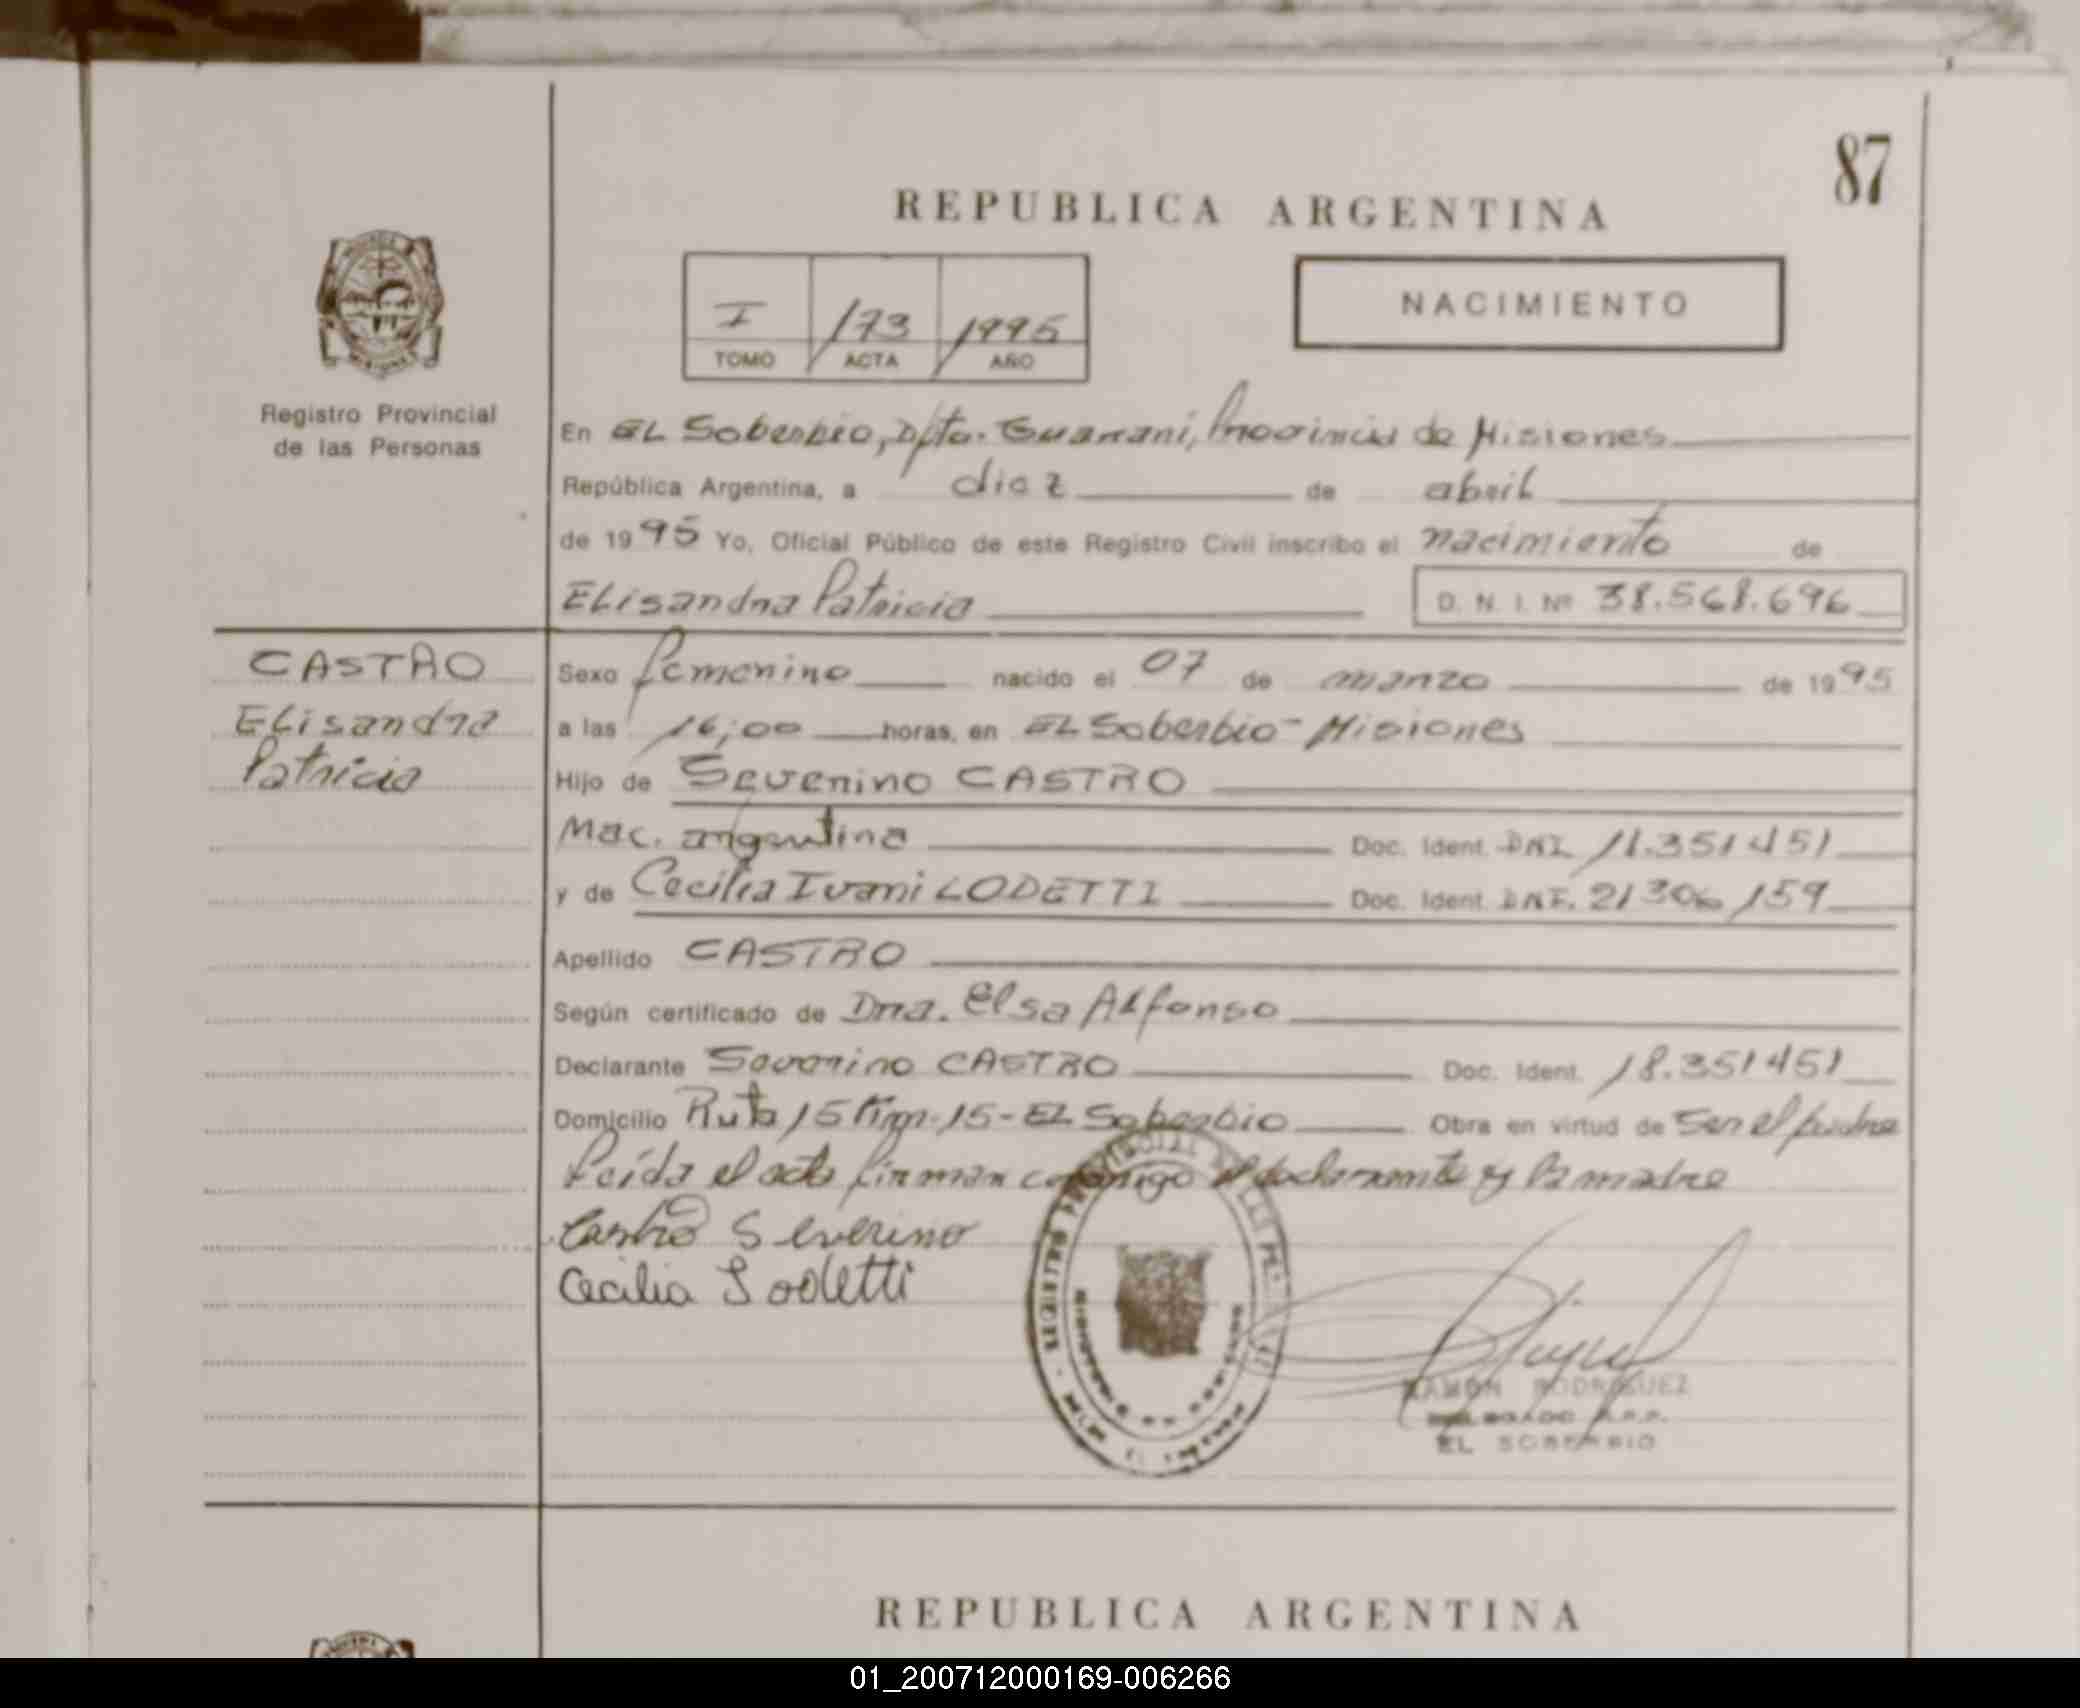 87
REPUBLICA ARGENTINA
I 173 1995
TOMO ACTA AÑO
NACIMIENTO
Registro Provincial
de las Personas
En EL Soberbio, Dpto. Guarani, Provincia de Misiones
República Argentina, a diez de abril
de 1995 Yo, Oficial Público de este Registro Civil inscribo el nacimiento de
Elisandra Patricia D. N. I. Nº 38.568.696
CASTRO
Elisandra
Patricia
Sexo femenino nacido el 07 de marzo de 1995
a las 16;00 horas, en EL Soberbio - Misiones
Hijo de Severino CASTRO
Nac. argentina Doc. Ident. DNI. 18.351451
y de Cecilia Ivani LODETTI Doc. Ident. DNI. 21306159
Apellido CASTRO
Según certificado de Dra. Elsa Alfonso
Declarante Severino CASTRO Doc. Ident. 18.351451
Domicilio Ruta 15 Km-15-EL Soberbio Obra en virtud de Ser el padre
Leída el acta firman conmigo el declarante y la madre
Castro Severino
Cecilia Lodetti
REGISTRO PROVINCIAL DE LAS PER
RAMON RODRIGUEZ
DELEGADO R.P.P.
EL SOBERBIO
REPUBLICA ARGENTINA
01_200712000169-006266